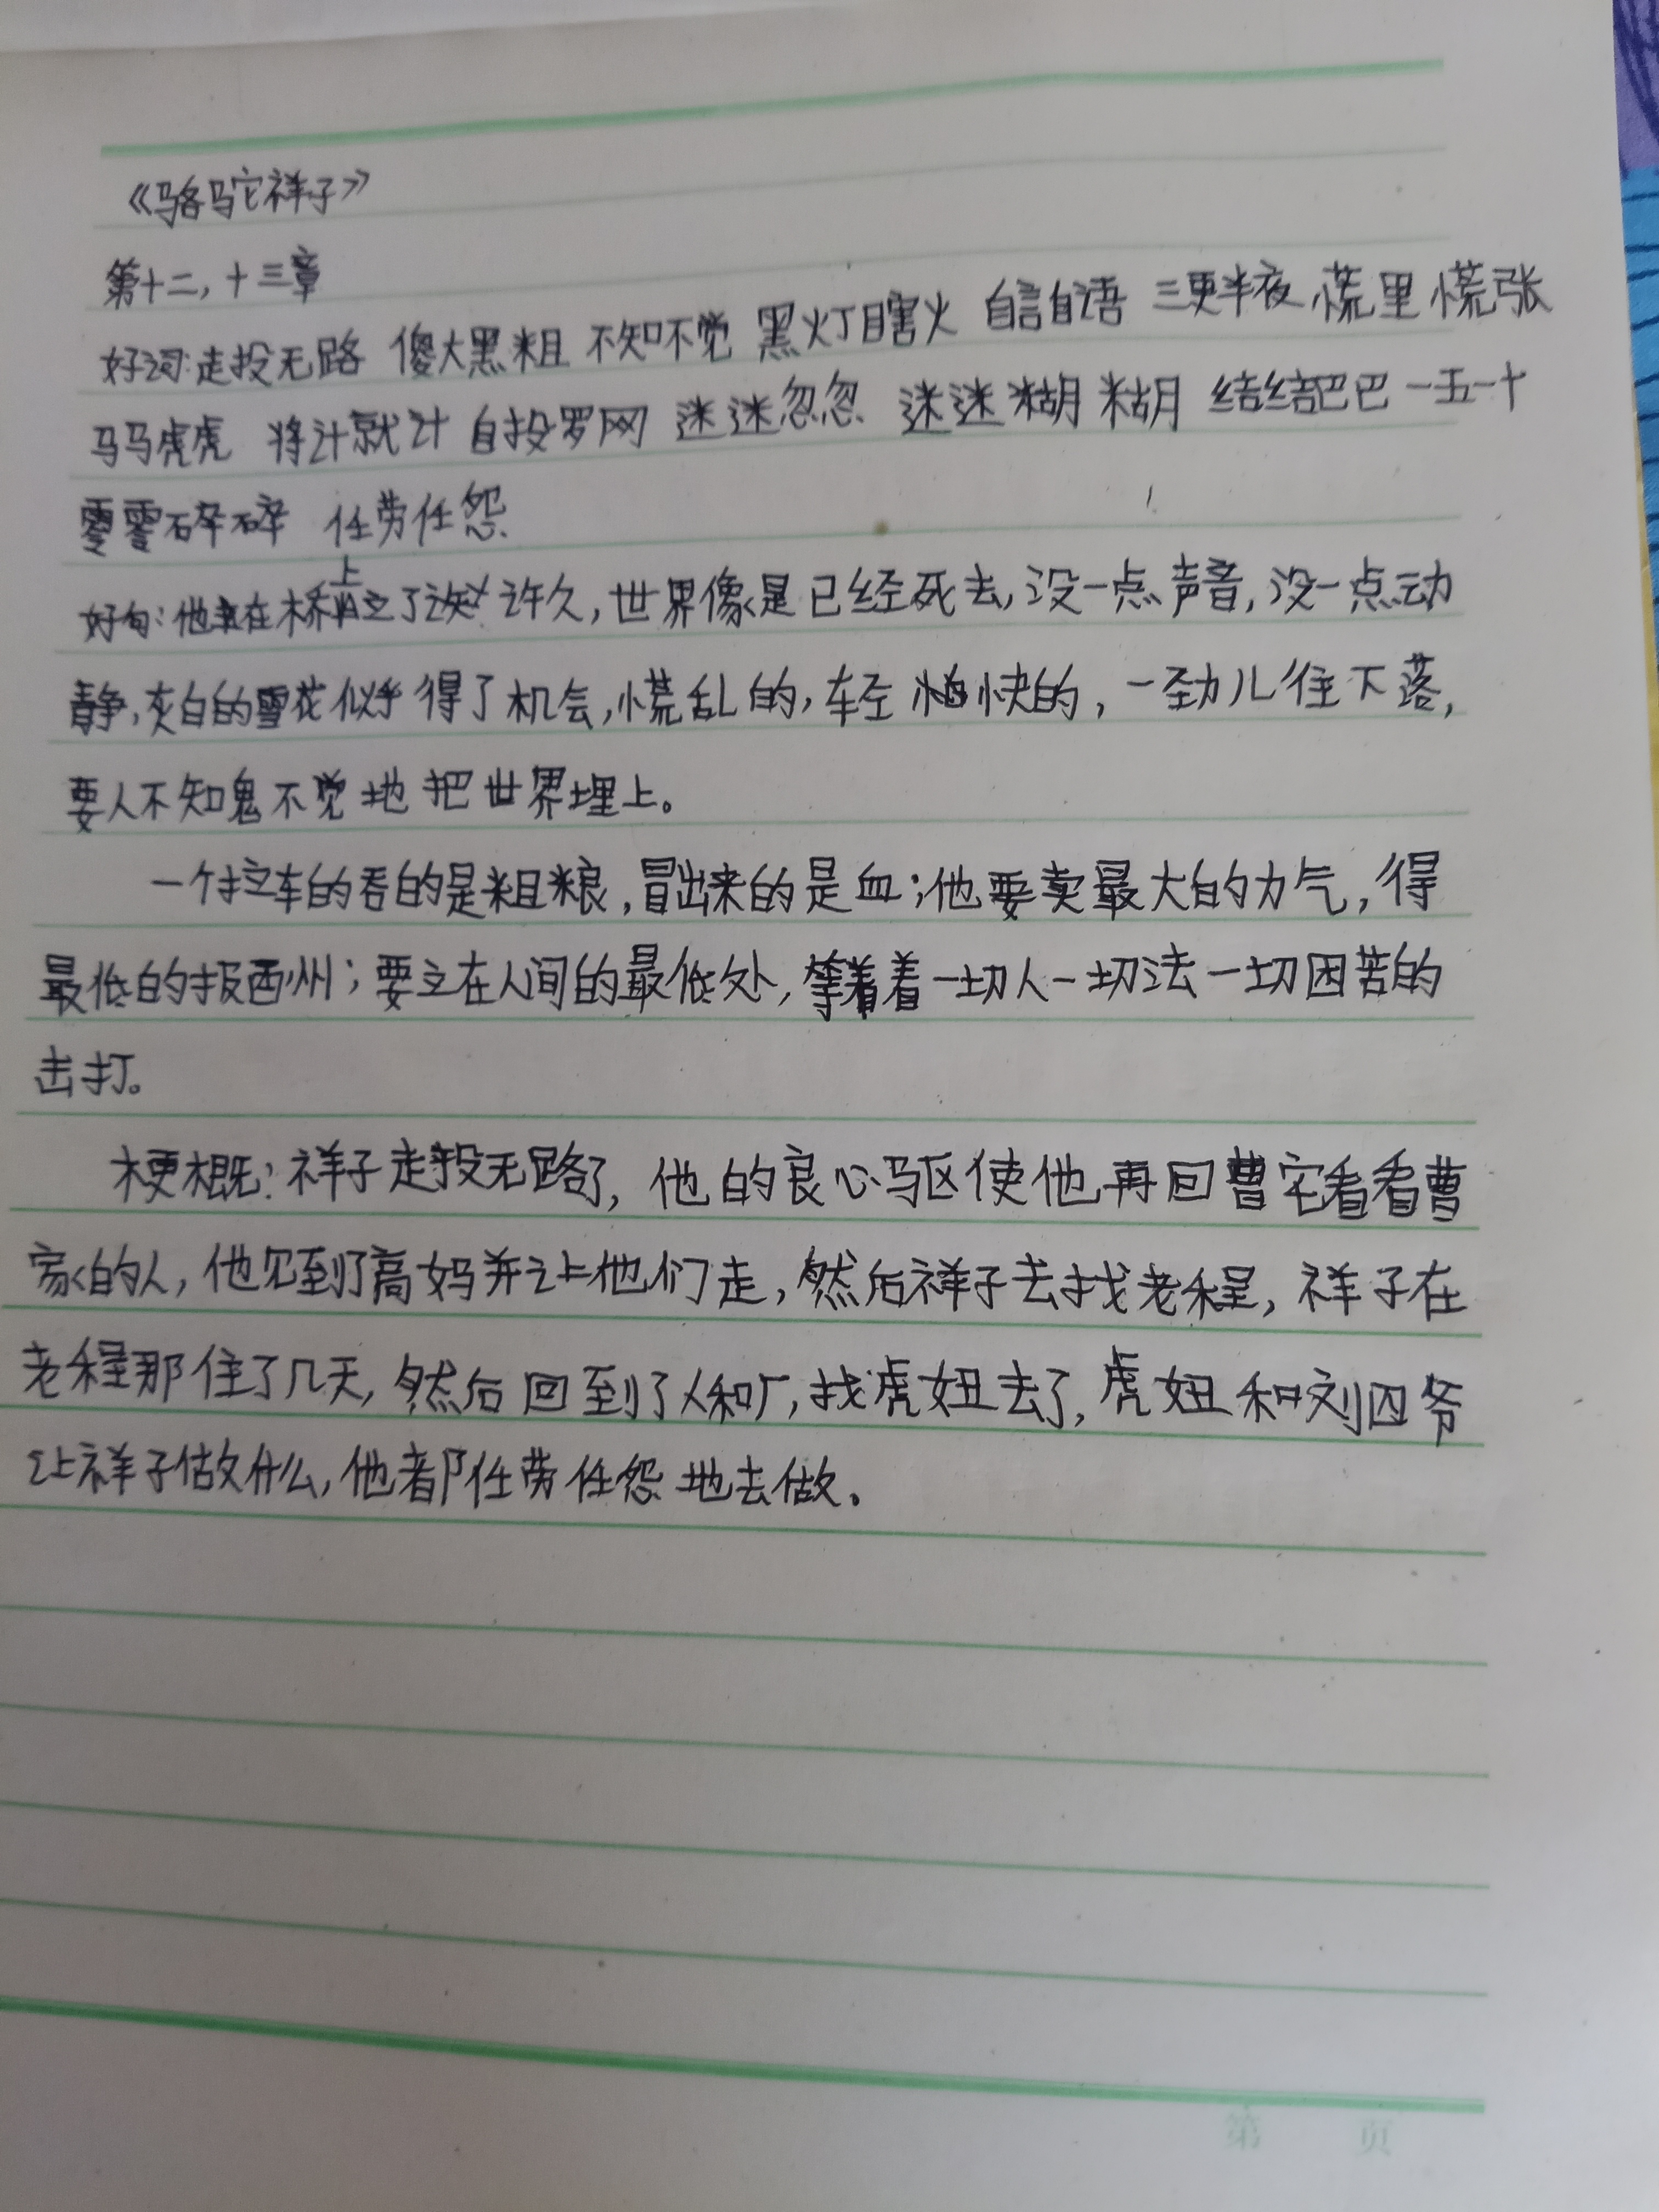 《骆驼祥子》
第十二，十三章
好词：走投无路 傻大黑粗 不知不觉 黑灯瞎火 自言自语 三更半夜 慌里慌张
马马虎虎 将计就计 自投罗网 迷迷忽忽 迷迷糊糊 结结巴巴 一五一十
零零碎碎 任劳任怨
好句：他在桥上立了许久，世界像是已经死去，没一点声音，没一点动
静，灰白的雪花似乎得了机会，慌乱的，轻快的，一劲儿往下落，
要人不知鬼不觉地把世界埋上。
一个拉车的吞的是粗粮，冒出来的是血；他要卖最大的力气，得
最低的报酬；要立在人间的最低处，等着着一切人一切法一切困苦的
击打。
梗概：祥子走投无路了，他的良心驱使他再回曹宅看看曹
家的人，他见到了高妈并让他们走，然后祥子去找老程，祥子在
老程那住了几天，然后回到了人和厂，找虎妞去了，虎妞和刘四爷
让祥子做什么，他都任劳任怨地去做。
第 页